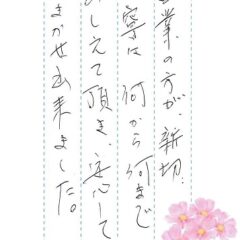 営業の方が、親切、
寧に 何から何まで
おしえて頂き、安心して
まかせ出来ました。